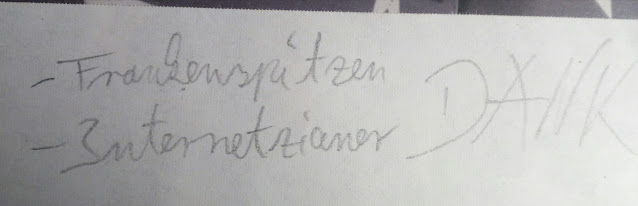 - Frankenspitzen
- Internetzianer
DANK